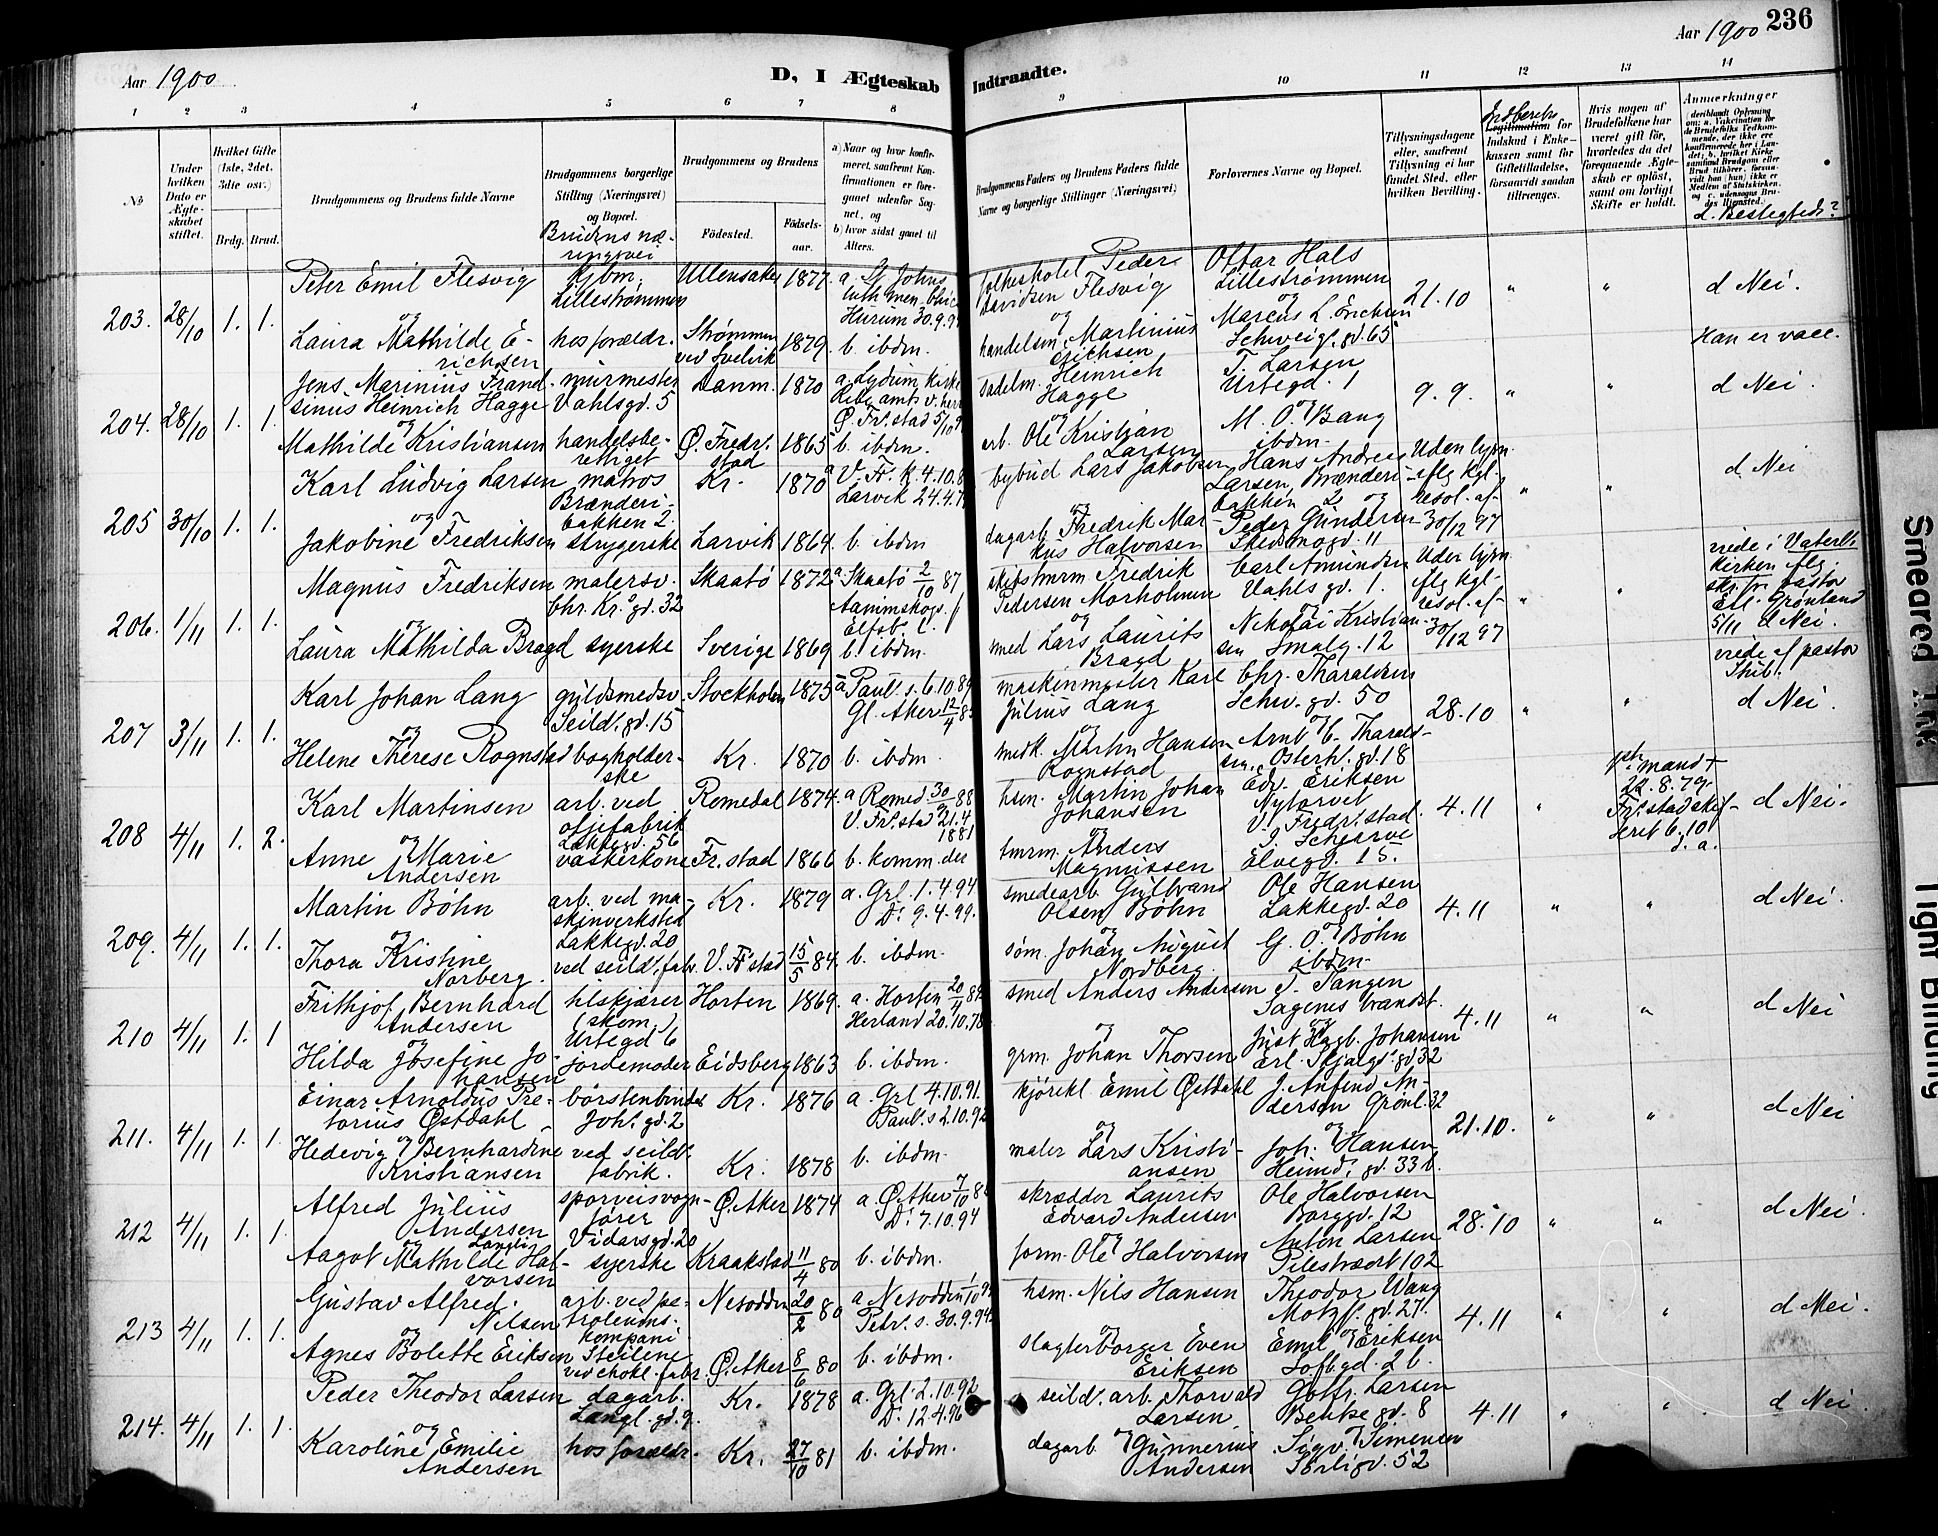 Aar 1900
D, I Ægteskab
Indtraadte.
Aar 1900 236
1 2 3 4 5 6 7 8
9 10 11 12 13 14
No
Under hvilken Dato er Ægteskabet stiftet.
Hvilket Gifte (1ste, 2det, 3die osv.)
Brdg. Brud.
Brudgommens og Brudens fulde Navne
Brudgommens borgerlige Stilling (Næringsvei) og Bopæl.
Brudens næringsvei
Brudgommens og Brudens
Födested. Födselsaar.
a) Naar og hvor konfirmeret, saafremt Konfirmationen er foregaaet udenfor Sognet, og
b) hvor sidst gaaet til Alters.
Brudgommens Faders og Brudens Faders fulde Navne og borgerlige Stillinger (Næringsvei)
Forlovernes Navne og Bopæl.
Tillysningsdagene eller, saafremt Tillysning ei har fundet Sted, efter hvilken Bevilling.
Legitimation for Indskud i Enkekassen samt for Giftetilladelse, forsaavidt saadan tiltrænges.
Hvis nogen af Brudefolkene har været gift før, hvorledes da det foregaaende Ægteskab er oplöst, samt om lovligt Skifte er holdt.
Anmærkninger
d. Beslegtede?
203. 28/10 1. 1.
Peter Emil Flesvig
kjbm. Lillestrømmen
Ullensaker 1877
a. St Johns
Hurum 30.9.9
Peder Davidsen Flesvig
Ottar Hals Lillestrømmen
21.10 " " d Nei.
og
Laura Mathilde Erichsen
hos forældr.
Strømmen ved Svelvik 1879.
b. ibdm.
og
handelsm. Martinius Erichsen
og
Marcus L. Erichsen
Schweig. gd. 65
Han er vacc.
204. 28/10 1. 1.
Jens Marinius Frandsinus Heinrich Hagge
murmester Vahlsgd. 5
Danm. 1870
a. Lydum kirke Ribe amt
Ø. Fr. stad 5/10
sadelm. Heinrich Hagge
T. Larsen Urtegd. 1
9.9. " " d Nei.
og
Mathilde Kristiansen
handelsberettiget
Ø. Fredr. stad 1865
b. ibdm.
og
arb. Ole Kristian Larsen
og
M. O. Bang ibdm.
205 30/10 1. 1.
Karl Ludvig Larsen
matros Brænderibakken 2.
Kr. 1870
a V. Fr. k. 4.10.8
Larvik 24.4.7
bybud Lars Jakobsen
Hans Andreas Larsen, Brænderibakken 2 og
Uden lysn. iflg kgl. resol. af 30/12 97
" " d Nei
og
Jakobine Fredriksen
strygerske
Larvik 1864.
b. ibdm
og
dagarb. Fredrik Markus Halvorsen
Peder Gundersen
Skedsmogd. 11
206. 1/11 1. 1.
Magnus Fredriksen
malersv. Chr. Kr. gd. 32
Skaatø 1872
a Skaatø 2/10 87
skibstmrm. Fredrik Pedersen Morholmen
Carl Amundsen Vahls gd. 1.
Uden lysn. iflg kgl. resol. af 30/12 97
" "
viede i Vaterl. kirken
Grønland 5/11 d Nei.
og
Laura Mathilda Bragd
syerske
Sverige 1869
b. ibdm.
og
Lars Laurits Bragd
og
Nikolai Kristiansen Smalg. 12
viede af pastor
207 3/11 1. 1.
Karl Johan Lang
guldsmedsv. Seild. gd. 15
Stockholm 1875
a Paul. s. 6.10.89
Gl. Aker 12/4 8
maskinmester Karl Julius Lang
Chr. Tharaldsen Schw. gd. 50
28.10 " " d Nei.
og
Helene Therese Rognstad
bogholderske
Kr. 1870
b. ibdm.
og
Martin Hansen Rognstad
Arnt C. Tharaldsen, Osterh. gd. 18
208 4/11 1. 2.
Karl Martinsen
arb. ved oljefabrik Lakkegd. 56
Romedal 1874.
a Romed 30/9 88
V. Fr. stad 21.4 1881
hsm. Martin Johan Johansen
Edv. Eriksen Nytorvet V. Fredr. stad.
4.11 "
1ste mand † 22.8.79.
Fr. stad
6.10
s. a.
d Nei.
og
Anne Marie Andersen
vaskerkone
Fr. stad 1866
b. komm. der
og
tmrm. Anders Magnussen
Elvegd. 15.
209. 4/11 1. 1.
Martin Bøhn
arb. ved maskinverksted Lakkegd. 20
Kr. 1879
a. Grl. 1.4.94
Do 9.4.99.
smedearb Gulbrand Olsen Bøhn
Ole Hansen Lakkegd. 20
4.11 " " d Nei.
og
Thora Kristine Norberg.
ved seild. fabr.
V. Fr. stad 15/5 84.
b. ibdm.
og
søm. Johan August Nordberg.
og
G. O. Bøhn ibdm.
210 4/11 1. 1
Frithjof Bernhard Andersen
tilskjærer (skom.) Urtegd 6
Horten 1869.
a. Horten 20/4 8
Herland 20.10.78
smed Anders Andersen
T. Tangen Sagenes brandst.
4.11 " " d Nei
og
Hilda Josefine Johansen
jordemoder
Eidsberg 1863
b. ibdm.
og
grm. Johan Thorsen
og
Just Hagb. Johansen
Erl. Skjalgs. gd 32
211. 4/11 1. 1.
Einar Arnoldus Pretorius Østdahl
børstenbinder Joh. gd. 2
Kr. 1876
a. Grl 4.10.91.
Paul. s 2.10.92
kjørekl Emil Østdahl
J. Anfind Andersen Grønl. 32
21.10. " " d Nei
og
Hedevig Bernhardine Kristiansen
ved seild. fabrik.
Kr. 1878
b. ibdm.
og
maler Lars Kristiansen
og
Joh. Hansen Heimd. gd. 33 b.
212 4/11 1. 1.
Alfred Julius Andersen
sporveisvognfører Vidarsgd. 20
Ø. Aker 1874
a. Ø. Aker 7/10 8
Do. 7.10.94
skrædder Laurits Edvard Andersen
Ole Halvorsen Borggd. 12
28.10 " " d Nei.
og
Aagot Mathilde Langli Halvorsen
syerske
Kraakstad 11/4 80
b. ibdm.
og
form. Ole Halvorsen
Anton Larsen Pilestrædt 102
213 4/11 1. 1.
Gustav Alfred Nilsen
arb. ved petroleums-kompani Steilene
Nesodden 20/2 80
a Nesodden 1/10 9
Petr. s. 30.9.94
hsm. Nils Hansen
Theodor Wang Motzf. gd. 27.
4.11 " " d Nei.
og
Agnes Bolette Eriksen
ved chokl. fabr.
Ø. Aker 8/6 80
b. ibdm.
og
slagterborger Even Eriksen
og
Emil Eriksen Sofb. gd. 2 b.
214. 4/11 1. 1.
Peder Theodor Larsen
dagarb. Langl. gd. 9.
Kr. 1878
a. Grl. 2.10.92
Do. 12.4.96
seild. arb. Thorvald Larsen
Gotfr. Larsen Behse gd. 8
4.11 " " d Nei.
og
Karoline Emilie Andersen
hos forældr.
Kr. 27/10 81
b. ibdm.
og
dagarb Gunnerius Andersen
og
Sigv. Simensen Sørligd. 52
Smeared Ink
Tight Binding